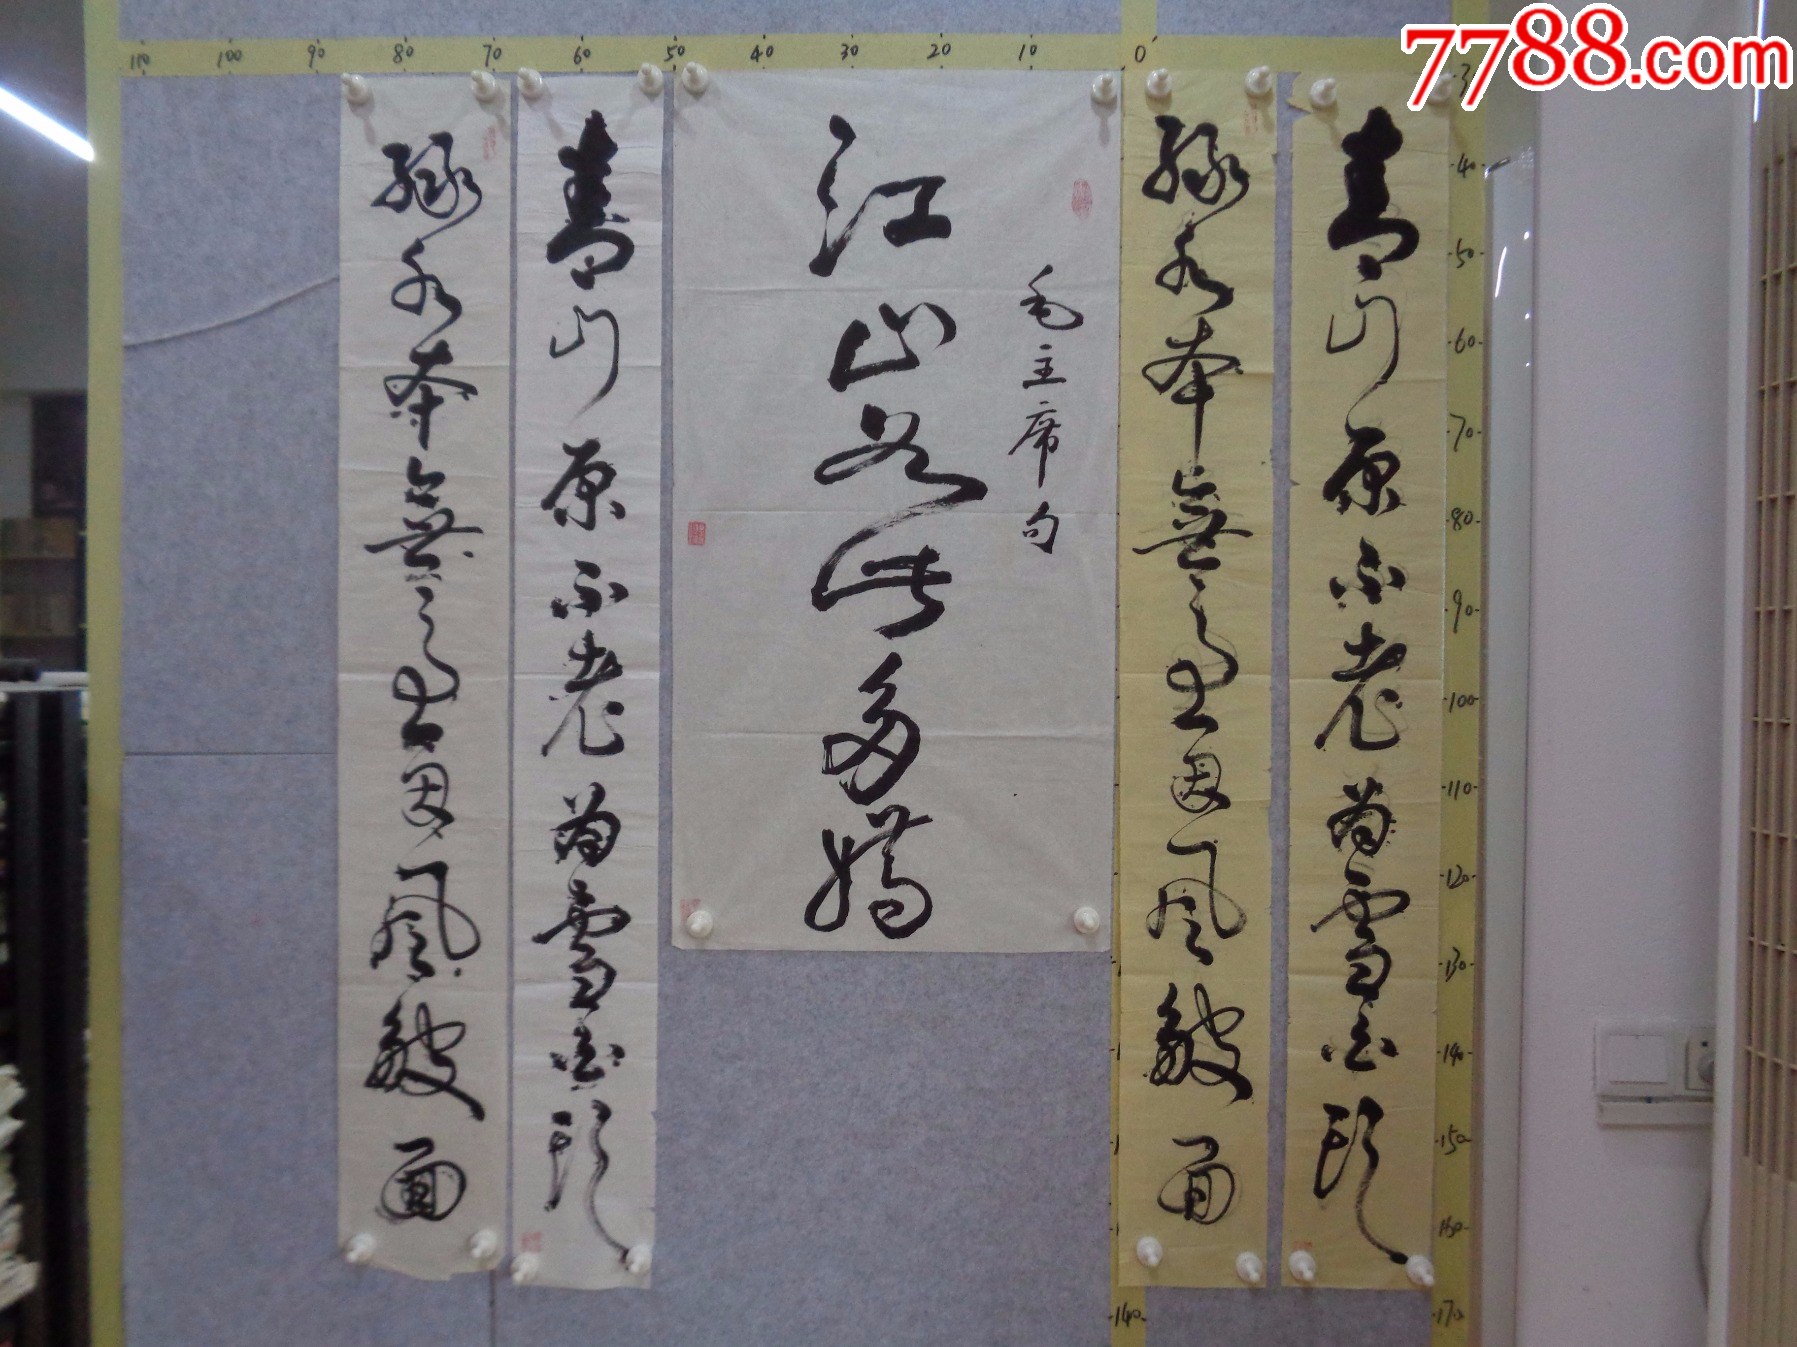 7788.com
110 100 90 80 70 60 50 40 30 20 10 0
青山原不老為雪白頭
綠水本無憂因風皺面
毛主席句
江山如此多嬌
青山原不老為雪白頭
綠水本無憂因風皺面
40
50
60
70
80
90
100
110
120
130
140
150
160
170
140